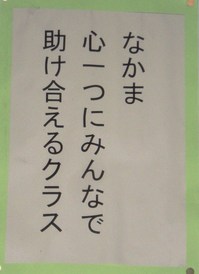 なかま
心一つにみんなで
助け合えるクラス